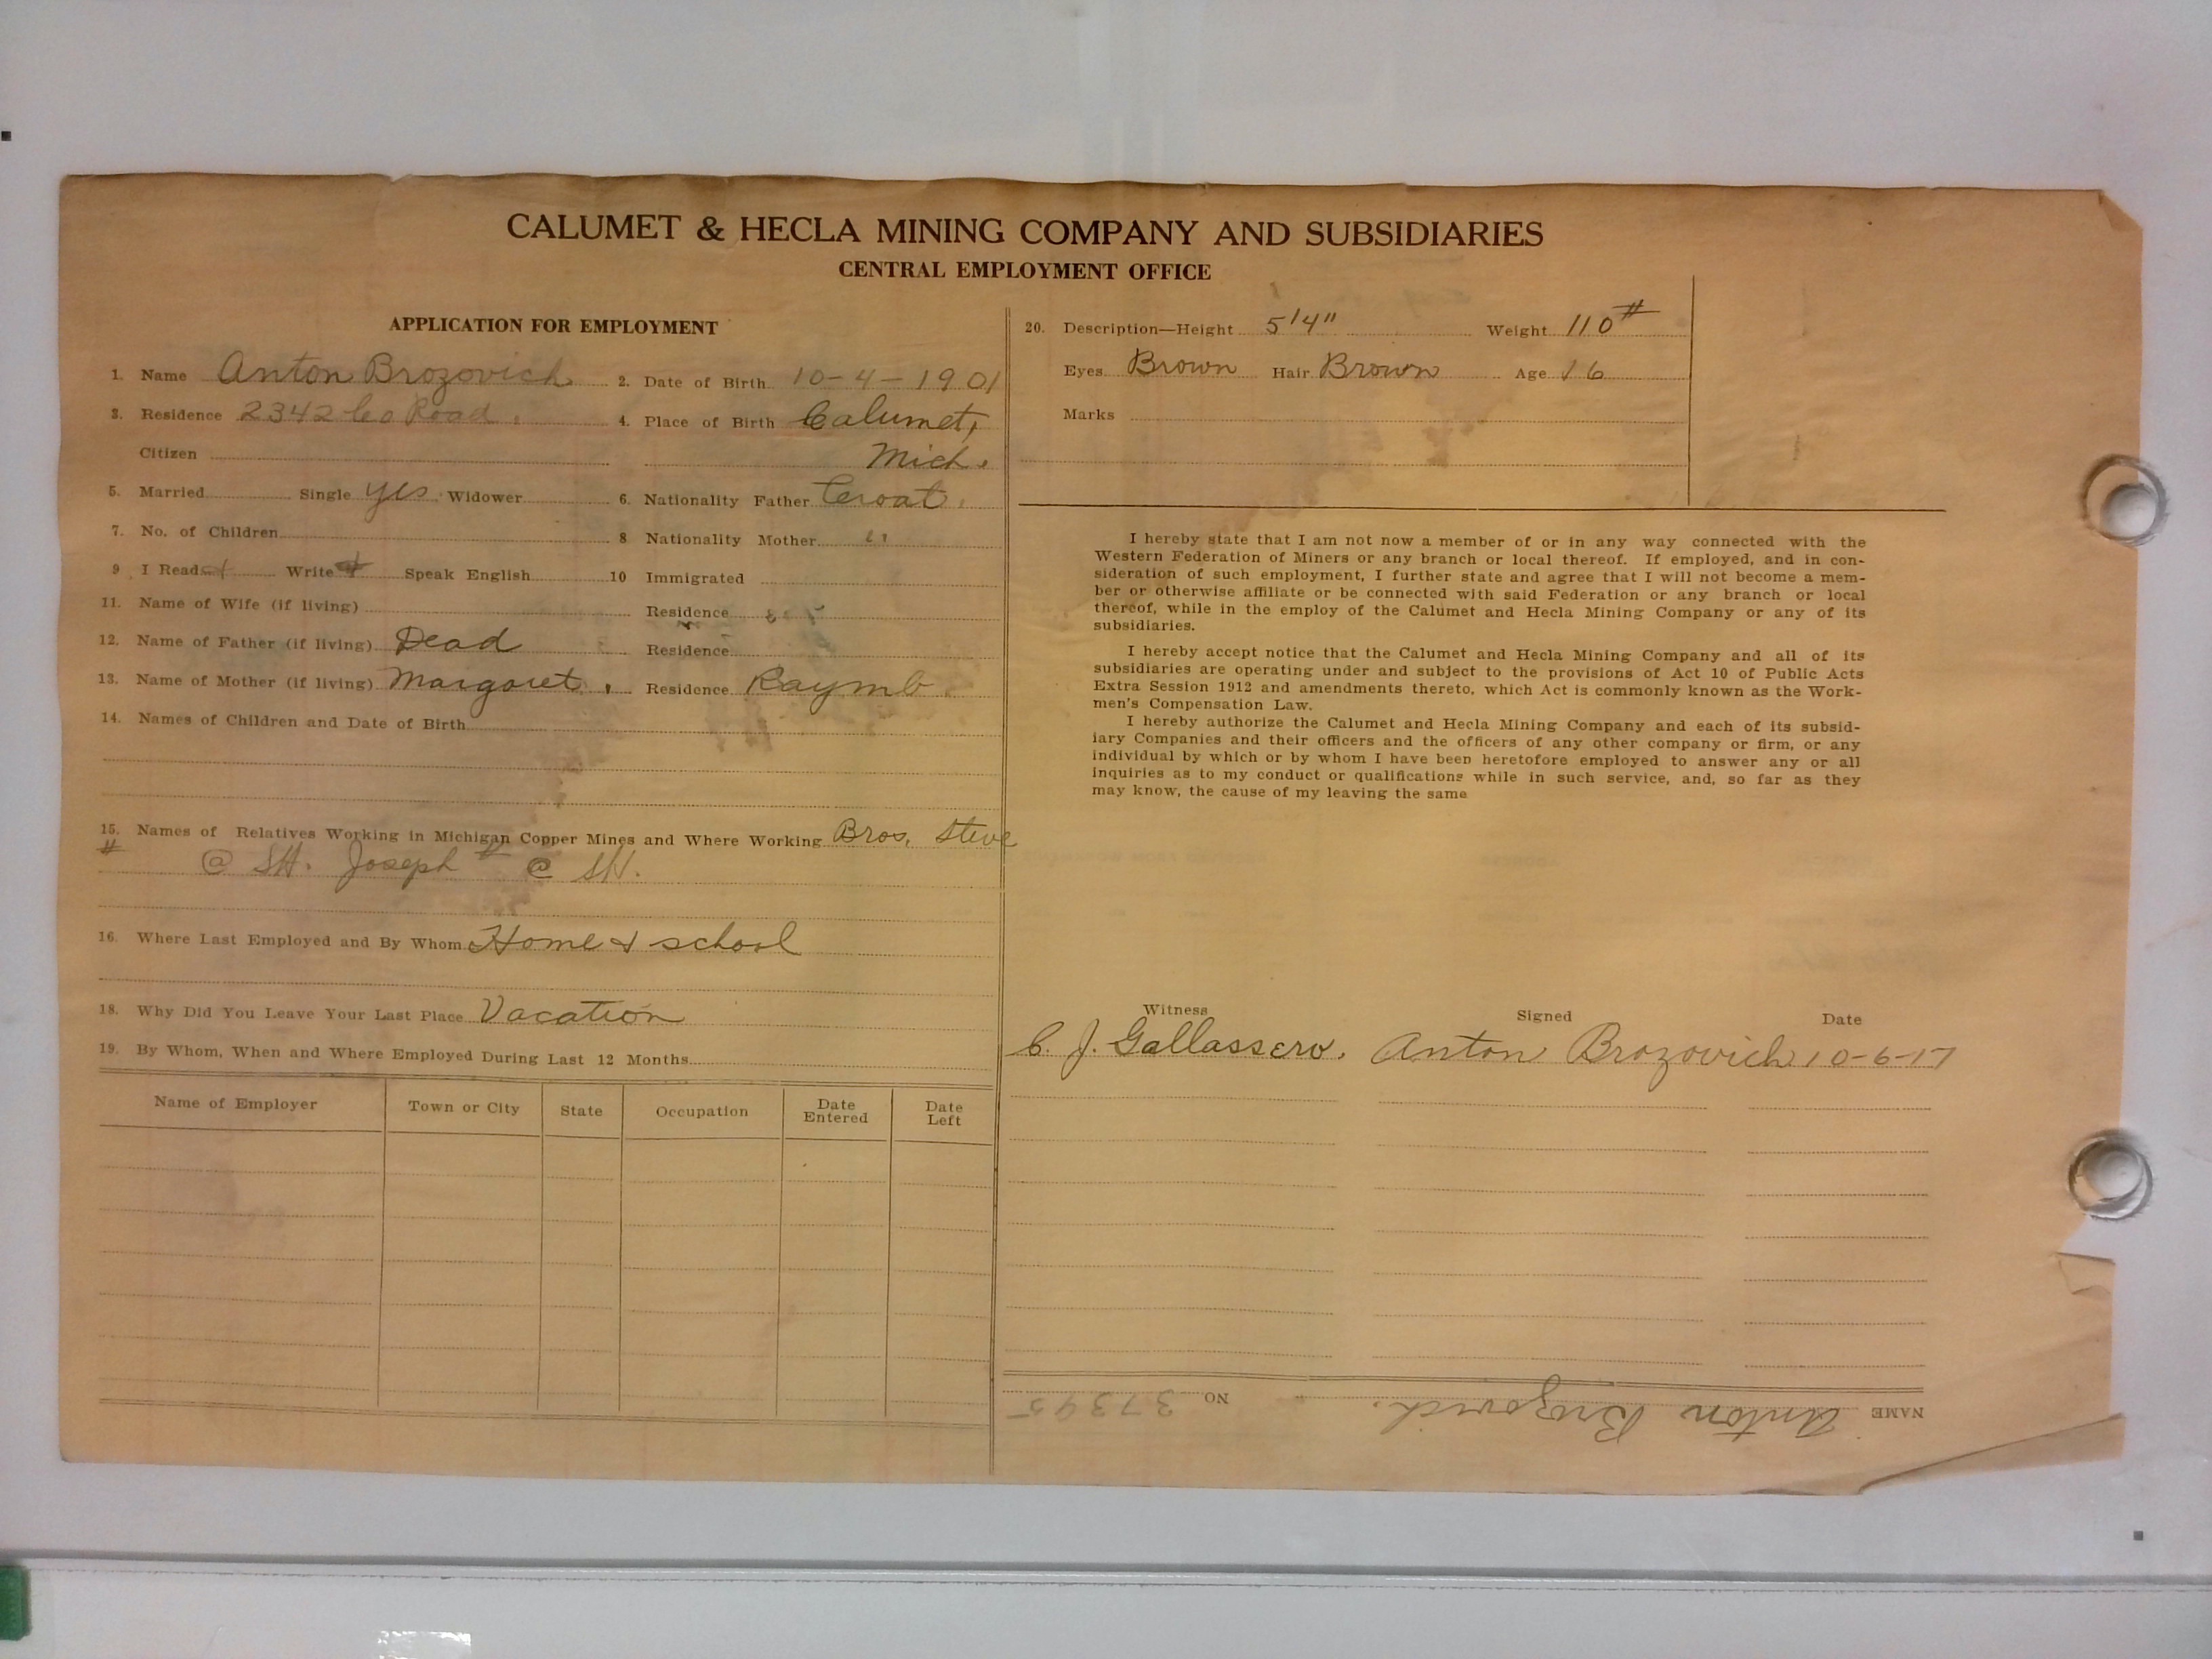 CALUMET & HECLA MINING COMPANY AND SUBSIDIARIES
CENTRAL EMPLOYMENT OFFICE
APPLICATION FOR EMPLOYMENT
1. Name Anton Brozovich 2. Date of Birth 10-4-1901
3. Residence 2342 Co Road. 4. Place of Birth Calumet,
Citizen Mich.
5. Married Single yes Widower 6. Nationality Father Croat.
7. No. of Children 8 Nationality Mother "
9 I Read Write Speak English 10 Immigrated
11. Name of Wife (if living) Residence
12. Name of Father (if living) Dead Residence
13. Name of Mother (if living) Margaret. Residence Raymb.
14. Names of Children and Date of Birth
15. Names of Relatives Working in Michigan Copper Mines and Where Working Bros, Steve
# @ SH. Joseph # @ SH.
16. Where Last Employed and By Whom Home & school
18. Why Did You Leave Your Last Place Vacation
19. By Whom, When and Where Employed During Last 12 Months
Name of Employer Town or City State Occupation Date Entered Date Left
20. Description—Height 5'4" Weight 110#
Eyes Brown Hair Brown Age 16
Marks
I hereby state that I am not now a member of or in any way connected with the
Western Federation of Miners or any branch or local thereof. If employed, and in con-
sideration of such employment, I further state and agree that I will not become a mem-
ber or otherwise affiliate or be connected with said Federation or any branch or local
thereof, while in the employ of the Calumet and Hecla Mining Company or any of its
subsidiaries.
I hereby accept notice that the Calumet and Hecla Mining Company and all of its
subsidiaries are operating under and subject to the provisions of Act 10 of Public Acts
Extra Session 1912 and amendments thereto, which Act is commonly known as the Work-
men's Compensation Law.
I hereby authorize the Calumet and Hecla Mining Company and each of its subsid-
iary Companies and their officers and the officers of any other company or firm, or any
individual by which or by whom I have been heretofore employed to answer any or all
inquiries as to my conduct or qualifications while in such service, and, so far as they
may know, the cause of my leaving the same
Witness Signed Date
C. J. Gallassero. Anton Brozovich 10-6-17
NAME Anton Brozovich. NO 37395